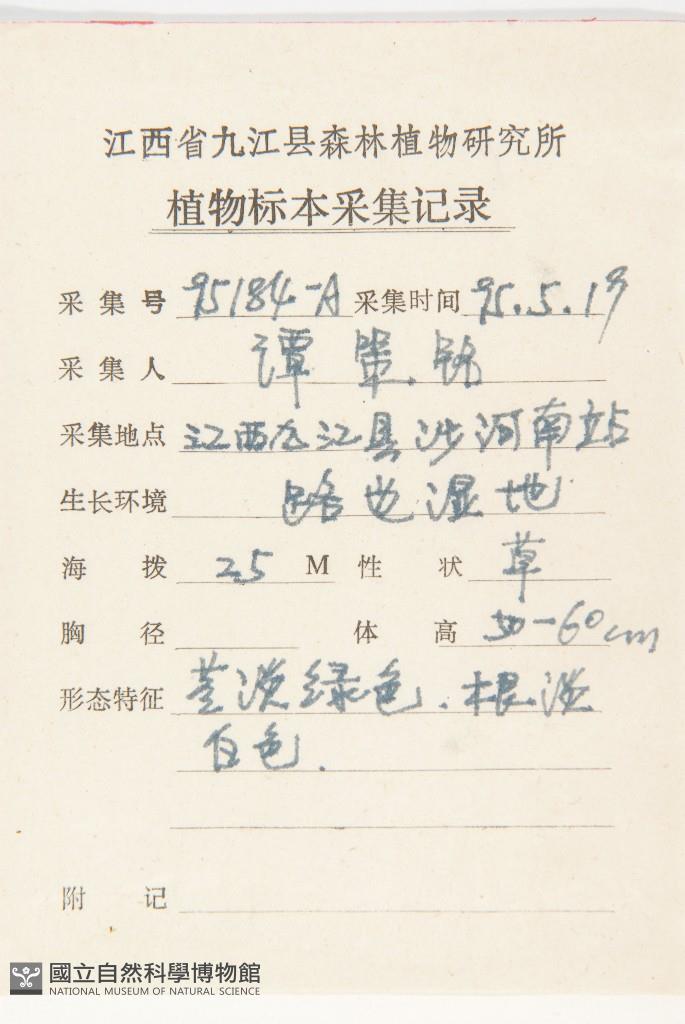 江西省九江县森林植物研究所
植物标本采集记录
采集号 95184-A 采集时间 95.5.19
采集人 谭策铭
采集地点 江西九江县沙河南站
生长环境 路边湿地
海拨 25 M 性状 草
胸径 体高 50-60cm
形态特征 茎淡绿色.根淡
白色.
附记
國立自然科學博物館
NATIONAL MUSEUM OF NATURAL SCIENCE